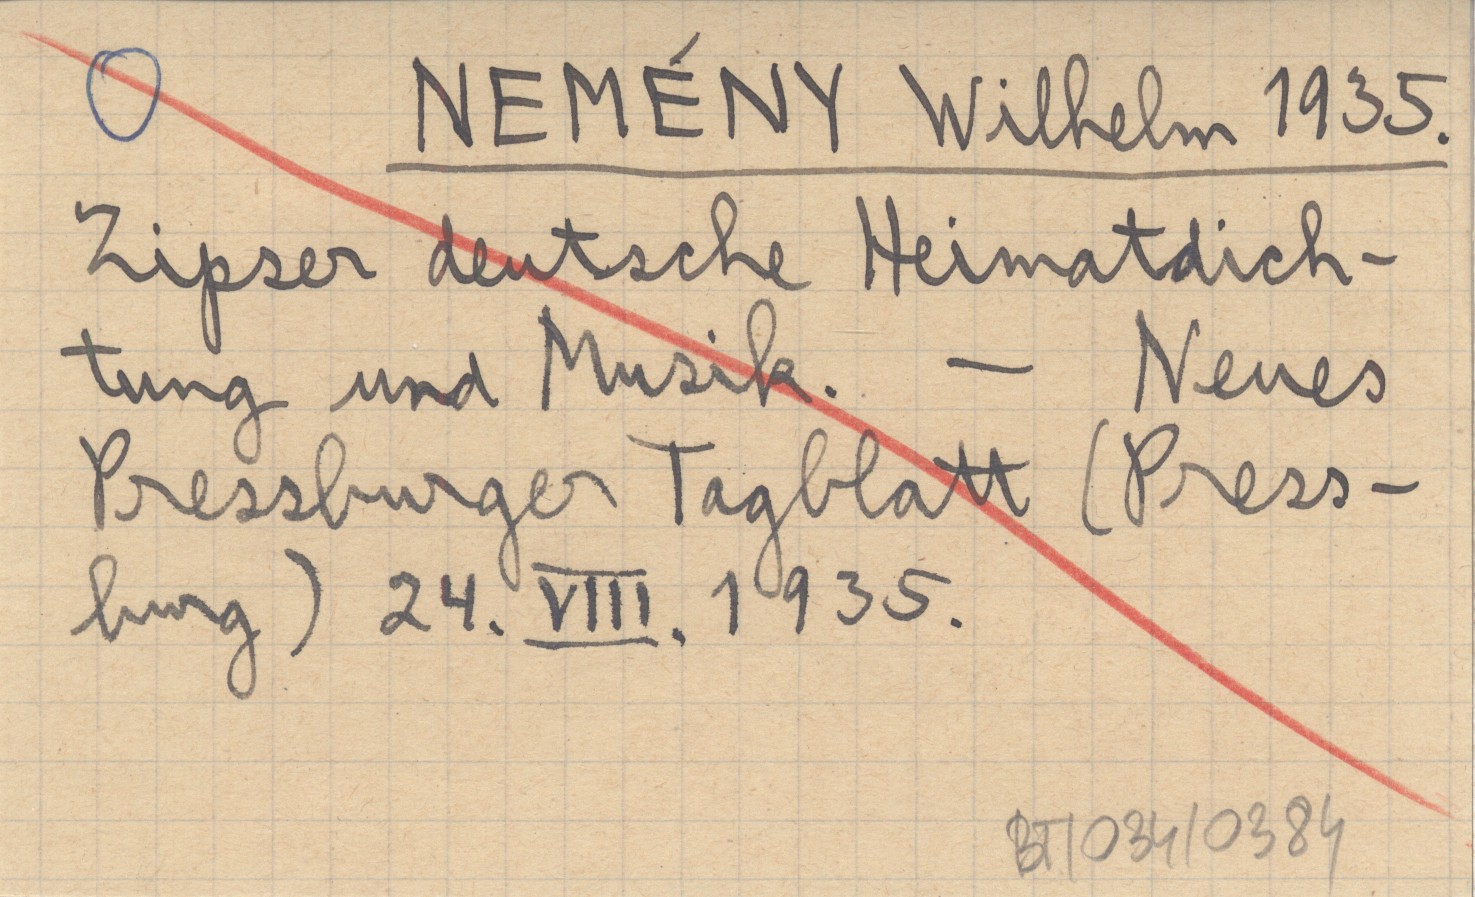 NEMÉNY Wilhelm 1935.
Zipser deutsche Heimatdich-
tung und Musik. — Neues
Pressburger Tagblatt (Press-
burg) 24. VIII. 1935.
BT/034/0384